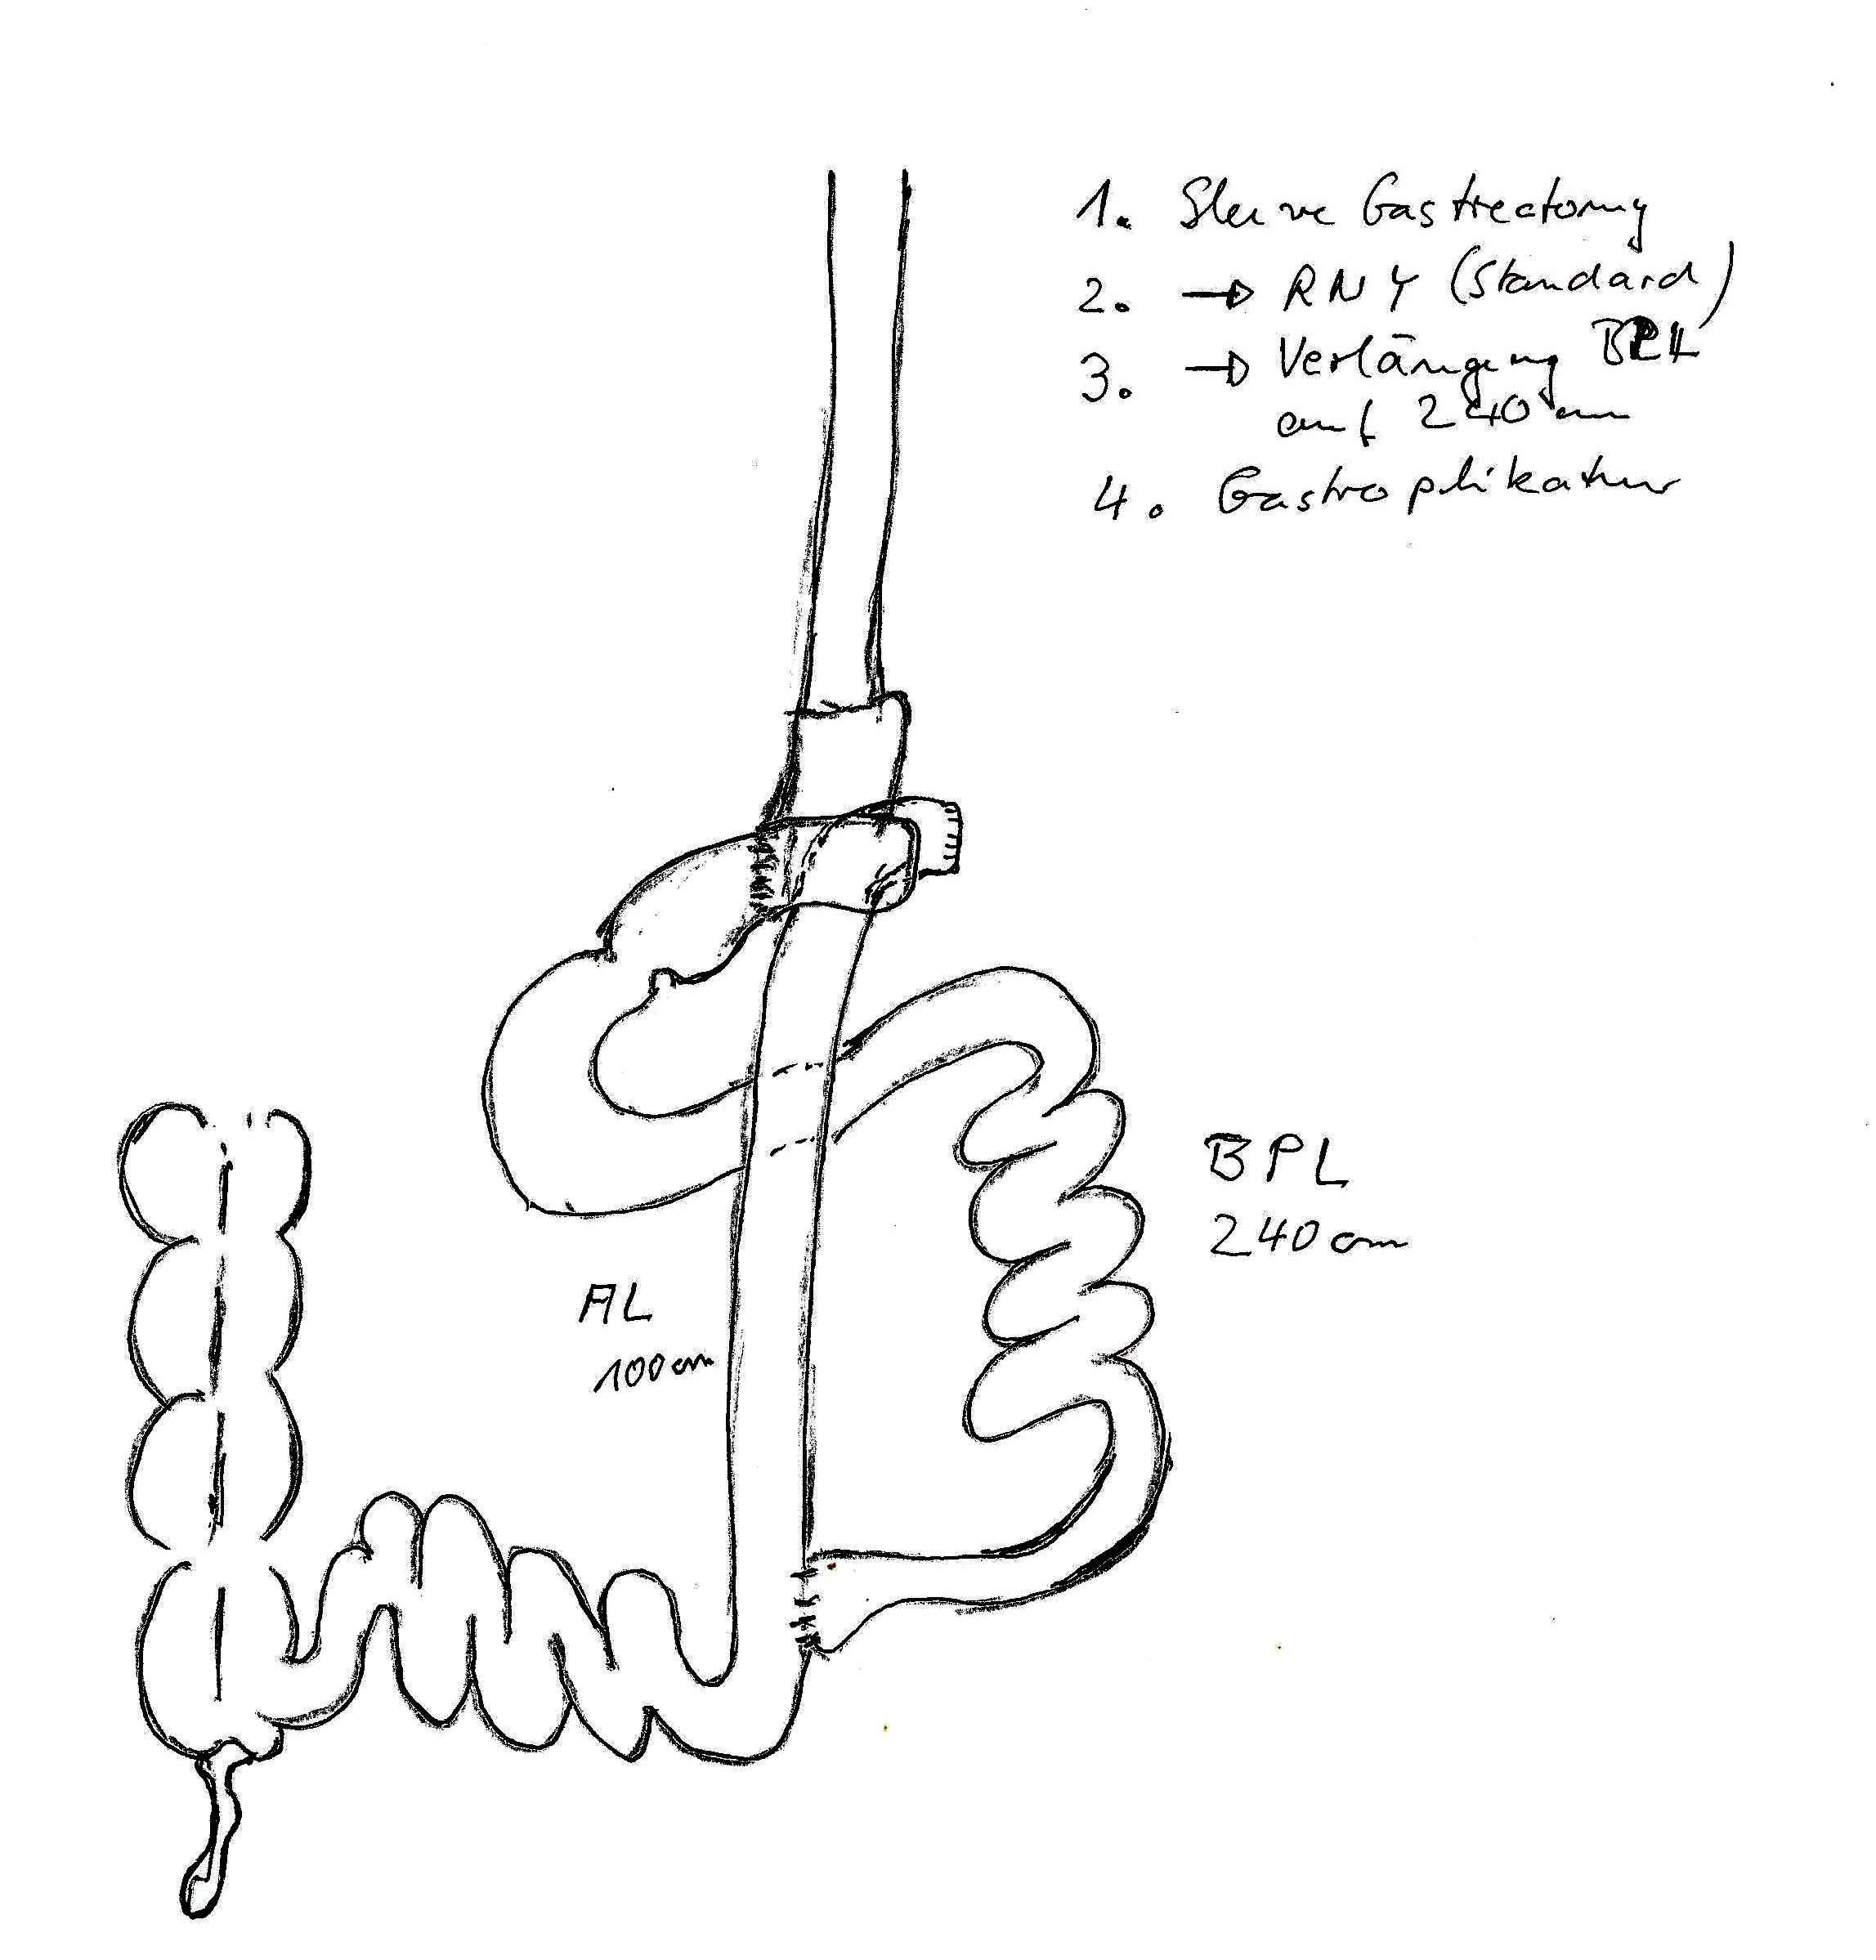 1. Sleeve Gastrectomy
2. → RNY (Standard)
3. → Verlängerung BPL
auf 240 cm
4. Gastroplikatur
BPL
240 cm
AL
100 cm